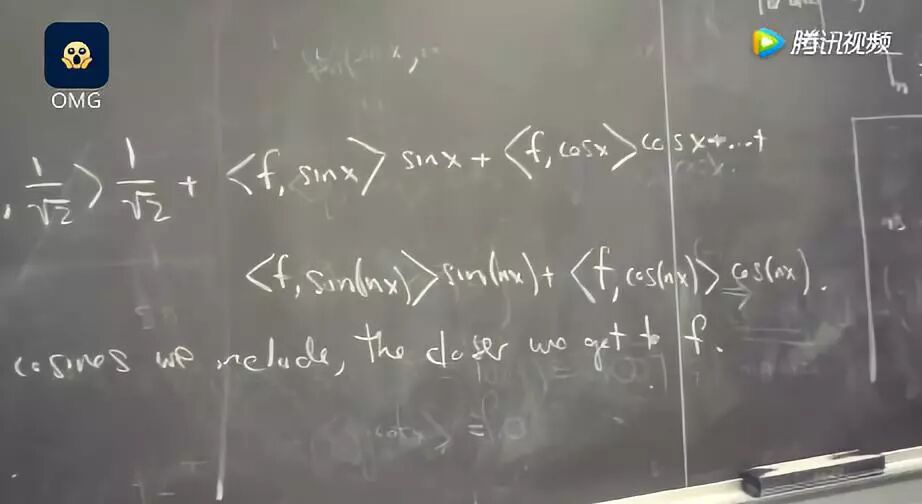 OMG
腾讯视频
, 1/√2> 1/√2 + <f, sinx> sinx + <f, cosx> cosx+...+
<f, sin(nx)> sin(nx) + <f, cos(nx)> cos(nx).
cosines we include, the closer we get to f.